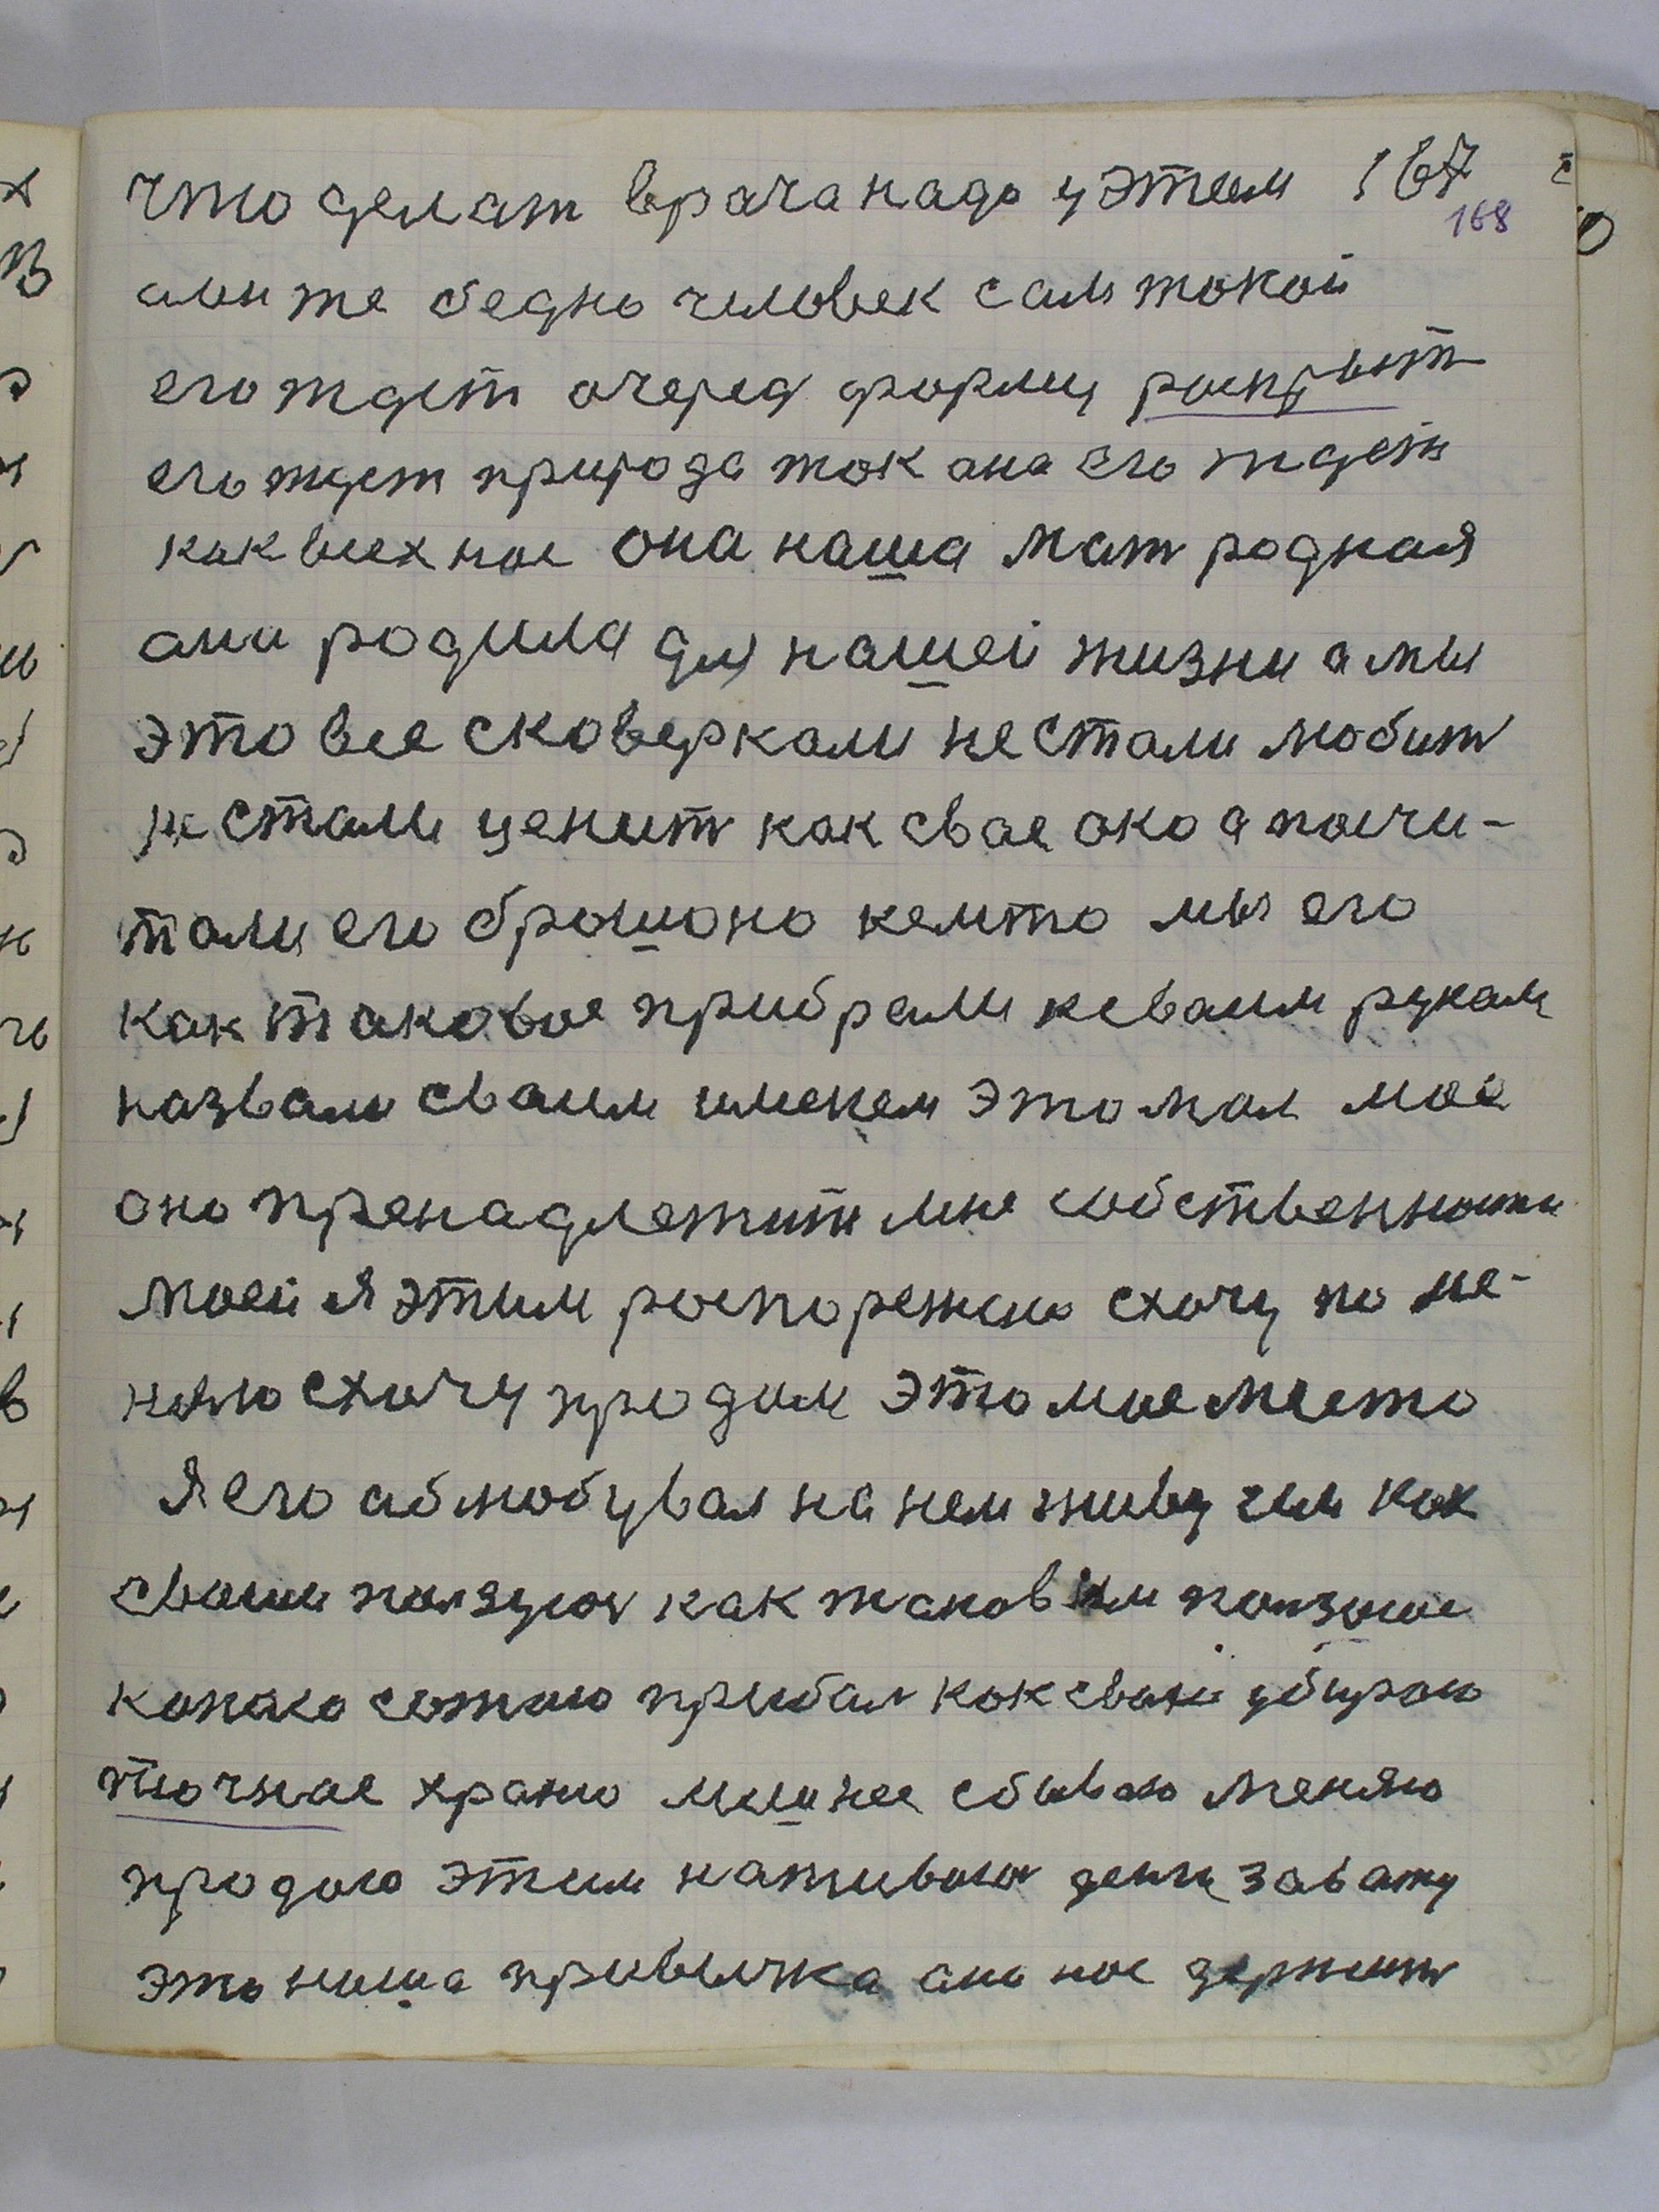 что делат врача надо у этим 167
168
или же бедно человек сам такой
его ждет очеред форму роскрыт
его ждет природа так ана его ждет
как всех нас она наша мат родная
ани родила для нашей жизни а мы
это все сковеркали не стали любит
не стали ценит как свае око а посчи-
тали его брошоно кемто мы его
как таковое прибрали ксваим рукам
назвали сваим именем это мол мое
оно пренадлежит мне собственности
моей я этим роспорежаю схочу по ме-
няю схочу продам это мое место
Я его аблюбувал на нем живу им как
сваим ползуюс как таковым
копаю сажаю как свай убираю
точное храню лишнее сбываю меняю
продаю этим наживаюс
это наша привычка ана нас держит